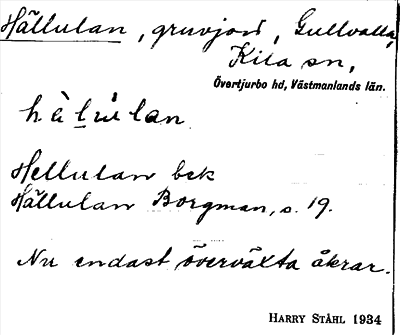 Hällulan, gruvjord, Gullvalla,
Kila sn,
Övertjurbo hd, Västmanlands län.
Hellulan bek
Hällulan Borgman, s. 19.
Nu endast överväxta åkrar.
HARRY STÅHL 1934